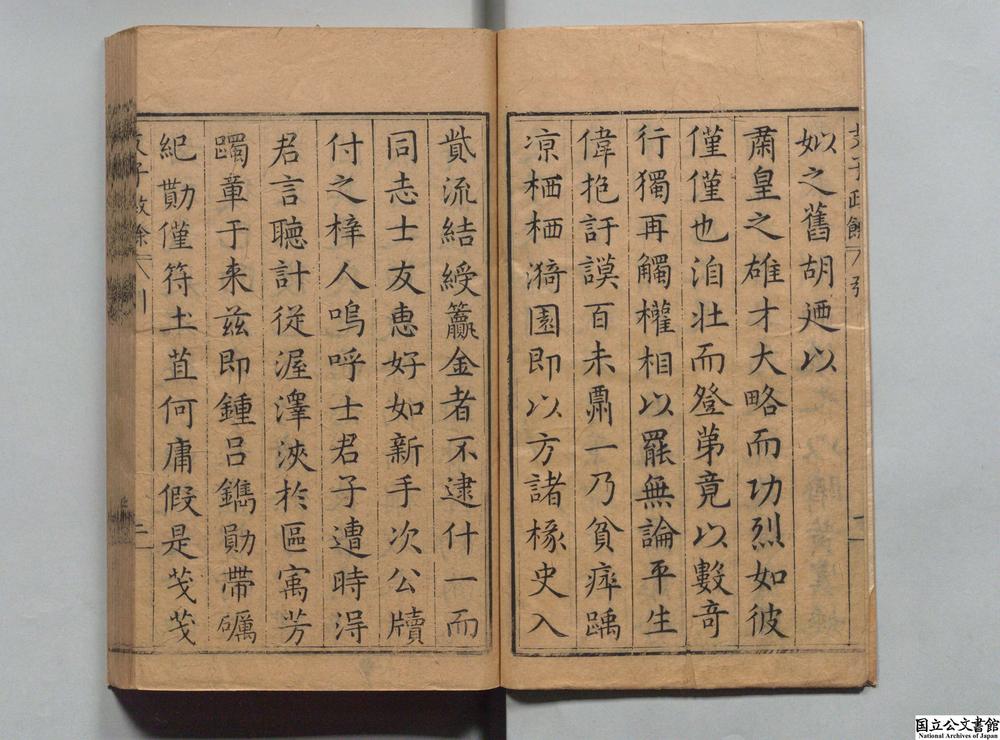 姒之舊胡廼以
肅皇之雄才大略而功烈如彼
僅僅也洎壯而登苐竟以數奇
行獨再觸權相以罷無論平生
偉抱訏謨百未鬻一乃貧瘁踽
凉栖栖漪園即以方諸椽史入
貲流結綬籯金者不逮什一而
同志士友惠好如新手次公牘
付之梓人嗚呼士君子遭時淂
君言聽計從渥澤浹於區㝢芳
躅章于来兹即鍾呂鐫勛帶礪
紀勩僅符土苴何庸假是戔戔
国立公文書館
National Archives of Japan